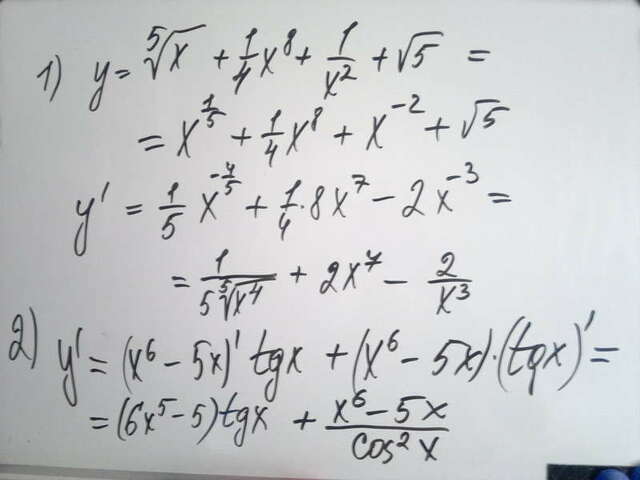 1) y = ⁵√x + 1/4 x⁸ + 1/x² + √5 =
= x^(1/5) + 1/4 x⁸ + x⁻² + √5
y' = 1/5 x^(-4/5) + 1/4 · 8x⁷ − 2x⁻³ =
= 1/(5 ⁵√x⁴) + 2x⁷ − 2/x³
2) y' = (x⁶ − 5x)' tgx + (x⁶ − 5x) · (tgx)' =
= (6x⁵ − 5) tgx + (x⁶ − 5x)/(cos² x)